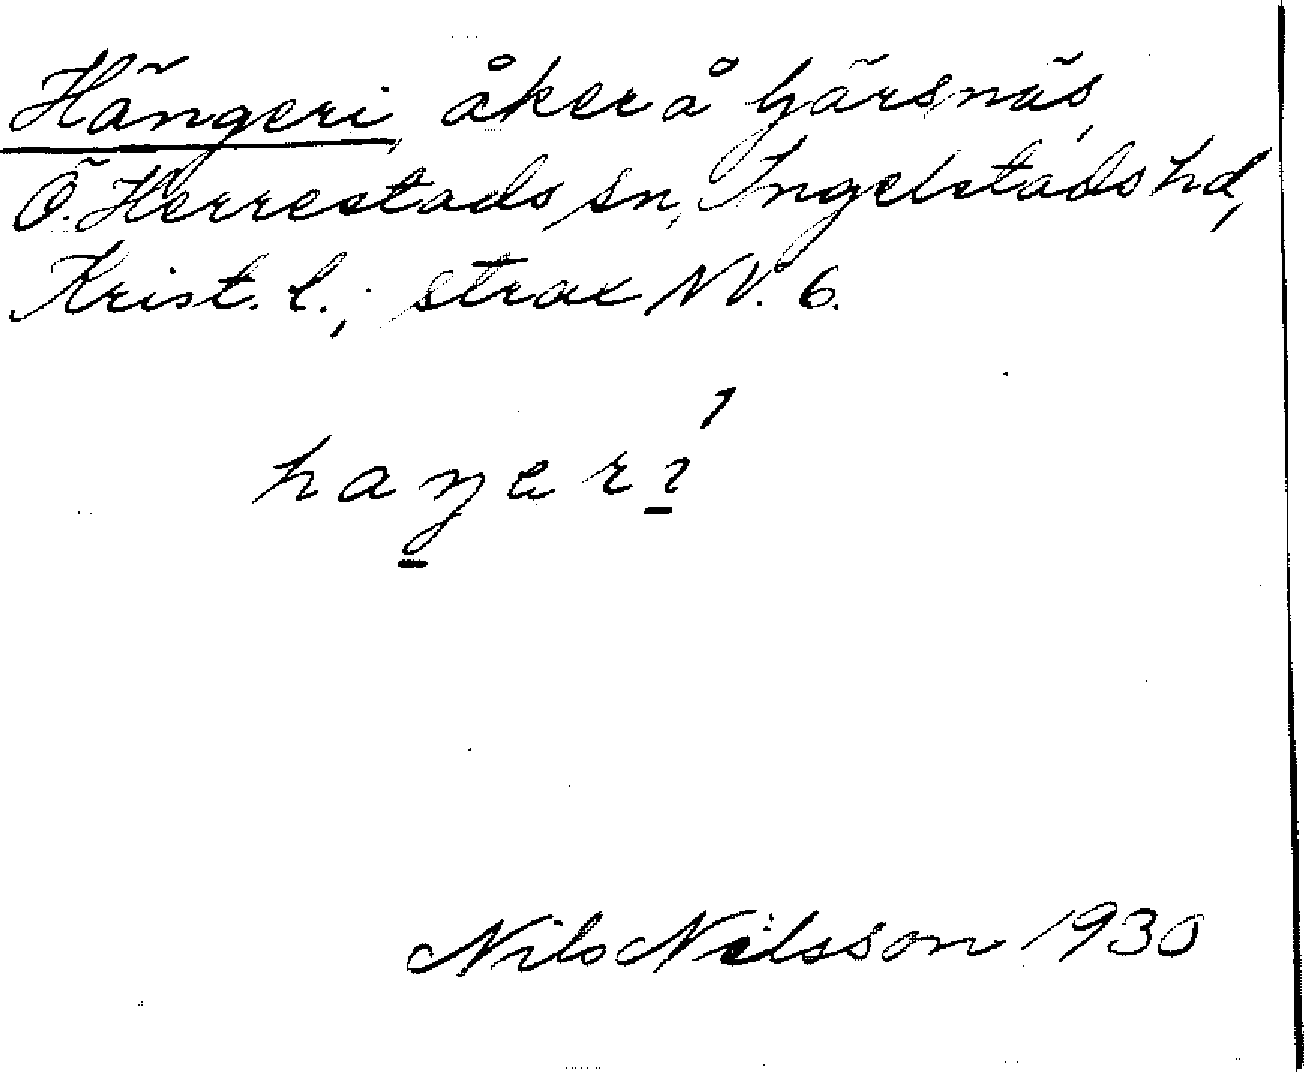 Hängeri, åker å Gärsnäs,
Ö. Herrestads sn, Ingelstads hd,
Krist. l.; strax NV. 6.
haŋeri
Nils Nilsson 1930